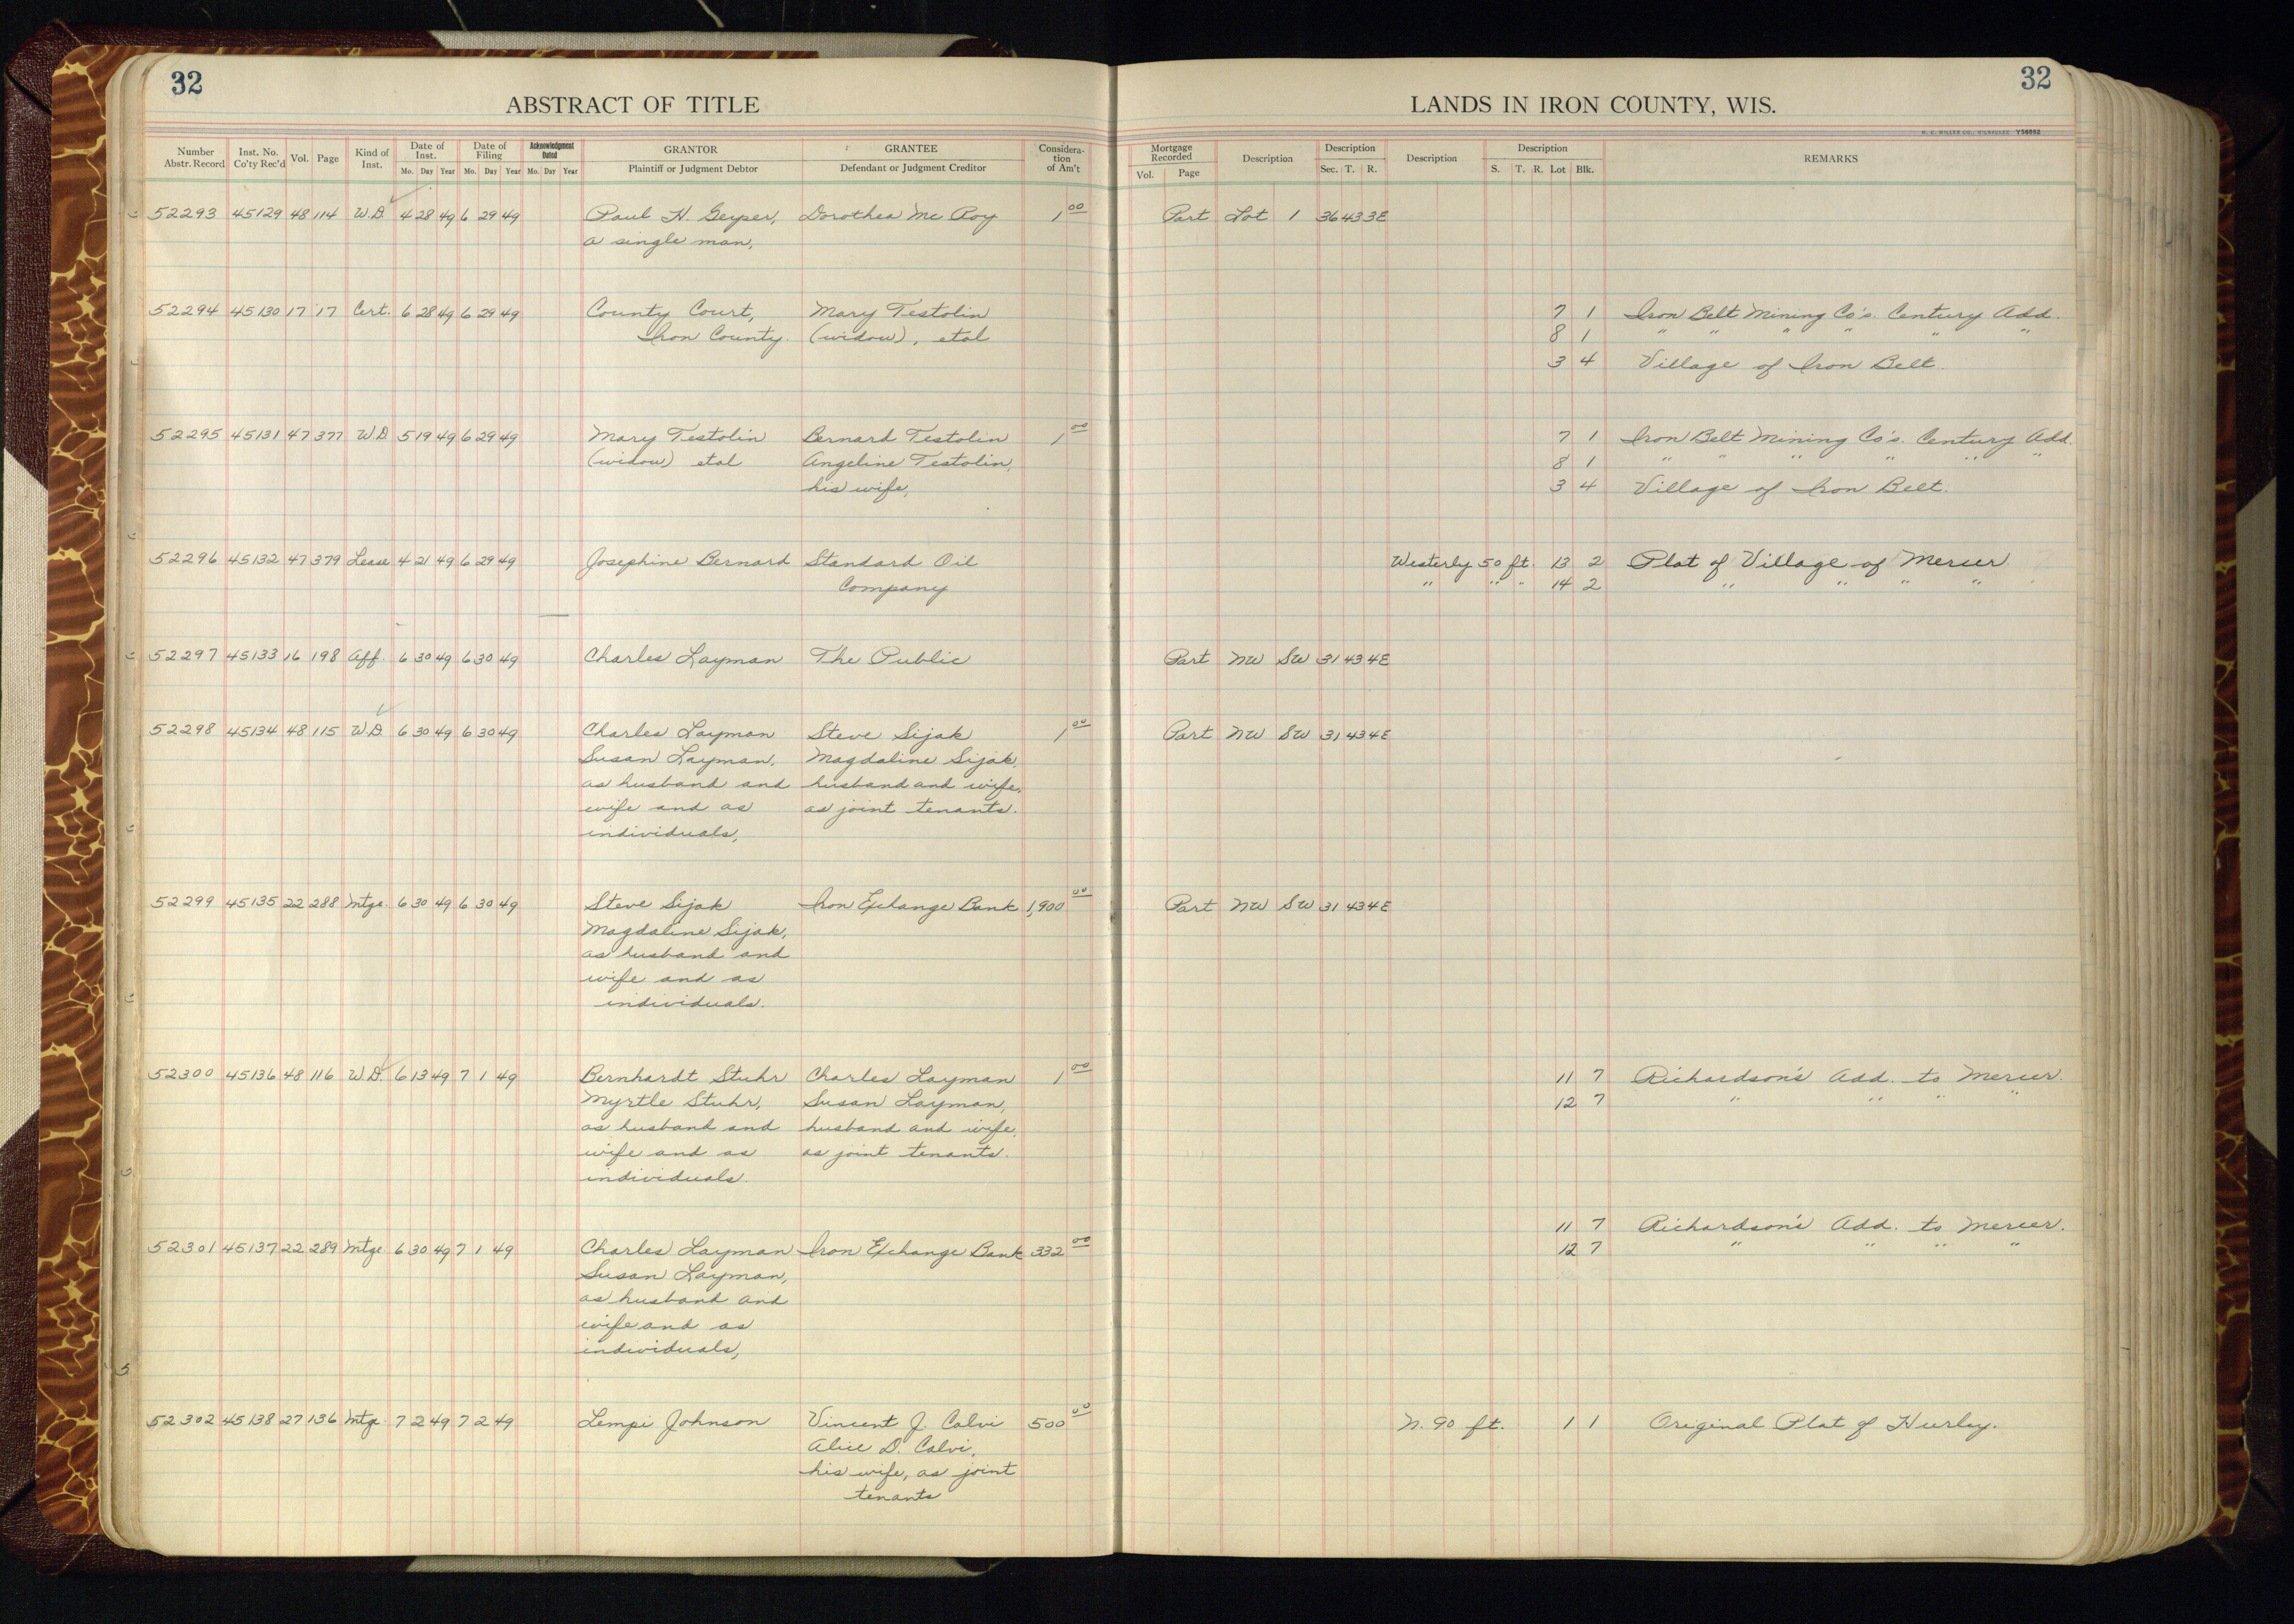 32
ABSTRACT OF TITLE
LANDS IN IRON COUNTY, WIS.
32
H. C. MILLER CO., MILWAUKEE Y56982
Number Abstr. Record Inst. No. Co'ty Rec'd Vol. Page Kind of Inst. Date of Inst. Mo. Day Year Date of Filing Mo. Day Year Acknowledgment Dated Mo. Day Year GRANTOR Plaintiff or Judgment Debtor GRANTEE Defendant or Judgment Creditor Consideration of Am't Mortgage Recorded Vol. Page Description Description Sec. T. R. Description Description S. T. R. Lot Blk. REMARKS
52293 45129 48 114 W.D. 4 28 49 6 29 49 Paul H. Geyser, Dorothea Mc Roy 1 00 Part Lot 1 36 43 3E
a single man,
52294 45130 17 17 Cert. 6 28 49 6 29 49 County Court, Mary Testolin 7 1 Iron Belt Mining Co's. Century Add.
Iron County. (widow), etal 8 1 " " " " " "
3 4 Village of Iron Belt.
52295 45131 47 377 W.D 5 19 49 6 29 49 Mary Testolin Bernard Testolin 1 00 7 1 Iron Belt Mining Co's. Century Add.
(widow) etal Angeline Testolin, 8 1 " " " " " "
his wife, 3 4 Village of Iron Belt.
52296 45132 47 379 Lease 4 21 49 6 29 49 Josephine Bernard Standard Oil Westerly 50 ft. 13 2 Plat of Village of Mercer.
Company " " " 14 2 " " " "
52297 45133 16 198 Aff. 6 30 49 6 30 49 Charles Layman The Public Part NW SW 31 43 4E
52298 45134 48 115 W.D. 6 30 49 6 30 49 Charles Layman Steve Sijak 1 00 Part NW SW 31 43 4E
Susan Layman, Magdaline Sijak,
as husband and husband and wife,
wife and as as joint tenants.
individuals,
52299 45135 22 288 Mtge. 6 30 49 6 30 49 Steve Sijak Iron Exchange Bank 1,900 00 Part NW SW 31 43 4E
Magdaline Sijak,
as husband and
wife and as
individuals.
52300 45136 48 116 W.D. 6 13 49 7 1 49 Bernhardt Stuhr Charles Layman 1 00 11 7 Richardson's Add. to Mercer.
Myrtle Stuhr, Susan Layman, 12 7 " " " "
as husband and husband and wife,
wife and as as joint tenants.
individuals.
11 7 Richardson's Add. to Mercer.
52301 45137 22 289 Mtge 6 30 49 7 1 49 Charles Layman Iron Exchange Bank 332 00 12 7 " " " "
Susan Layman,
as husband and
wife and as
individuals,
52302 45138 27 136 Mtge 7 2 49 7 2 49 Lempi Johnson Vincent J. Calvi 500 00 N. 90 ft. 1 1 Original Plat of Hurley.
Alice D. Calvi,
his wife, as joint
tenants